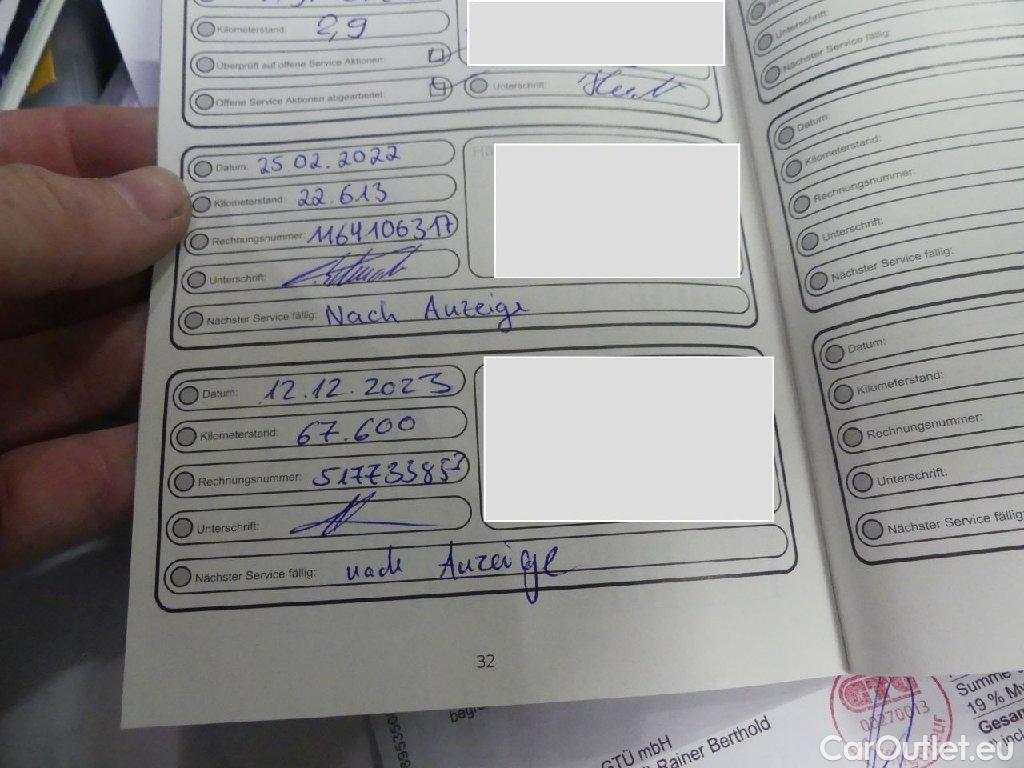 Kilometerstand: 2,9
Überprüft auf offene Service Aktionen:
Offene Service Aktionen abgearbeitet:
Unterschrift:
Datum: 25.02.2022
Kilometerstand: 22.613
Rechnungsnummer: 1164106317
Unterschrift:
Nächster Service fällig: Nach Anzeige
Datum: 12.12.2023
Kilometerstand: 67.600
Rechnungsnummer: 517733857
Unterschrift:
Nächster Service fällig: nach Anzeige
32
Unterschrift:
Nächster Service fällig:
Datum:
Kilometerstand:
Rechnungsnummer:
Unterschrift:
Nächster Service fällig:
Datum:
Kilometerstand:
Rechnungsnummer:
Unterschrift:
Nächster Service fällig:
GTÜ mbH
Rainer Berthold
Summe
19 %
CarOutlet.eu